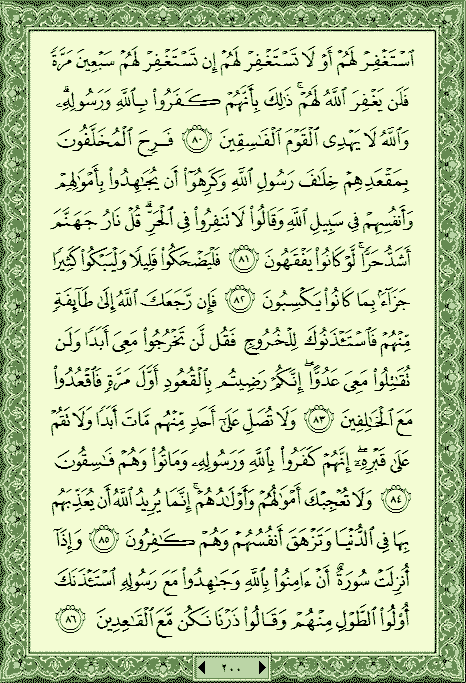 ٱسْتَغْفِرْ لَهُمْ أَوْ لَا تَسْتَغْفِرْ لَهُمْ إِن تَسْتَغْفِرْ لَهُمْ سَبْعِينَ مَرَّةً
فَلَن يَغْفِرَ ٱللَّهُ لَهُمْ ۚ ذَٰلِكَ بِأَنَّهُمْ كَفَرُوا۟ بِٱللَّهِ وَرَسُولِهِۦ ۗ
وَٱللَّهُ لَا يَهْدِى ٱلْقَوْمَ ٱلْفَـٰسِقِينَ ٨٠ فَرِحَ ٱلْمُخَلَّفُونَ
بِمَقْعَدِهِمْ خِلَـٰفَ رَسُولِ ٱللَّهِ وَكَرِهُوٓا۟ أَن يُجَـٰهِدُوا۟ بِأَمْوَٰلِهِمْ
وَأَنفُسِهِمْ فِى سَبِيلِ ٱللَّهِ وَقَالُوا۟ لَا تَنفِرُوا۟ فِى ٱلْحَرِّ ۗ قُلْ نَارُ جَهَنَّمَ
أَشَدُّ حَرًّا ۚ لَّوْ كَانُوا۟ يَفْقَهُونَ ٨١ فَلْيَضْحَكُوا۟ قَلِيلًا وَلْيَبْكُوا۟ كَثِيرًا
جَزَآءًۢ بِمَا كَانُوا۟ يَكْسِبُونَ ٨٢ فَإِن رَّجَعَكَ ٱللَّهُ إِلَىٰ طَآئِفَةٍ
مِّنْهُمْ فَٱسْتَـْٔذَنُوكَ لِلْخُرُوجِ فَقُل لَّن تَخْرُجُوا۟ مَعِىَ أَبَدًا وَلَن
تُقَـٰتِلُوا۟ مَعِىَ عَدُوًّا ۖ إِنَّكُمْ رَضِيتُم بِٱلْقُعُودِ أَوَّلَ مَرَّةٍ فَٱقْعُدُوا۟
مَعَ ٱلْخَـٰلِفِينَ ٨٣ وَلَا تُصَلِّ عَلَىٰٓ أَحَدٍ مِّنْهُم مَّاتَ أَبَدًا وَلَا تَقُمْ
عَلَىٰ قَبْرِهِۦٓ ۖ إِنَّهُمْ كَفَرُوا۟ بِٱللَّهِ وَرَسُولِهِۦ وَمَاتُوا۟ وَهُمْ فَـٰسِقُونَ
٨٤ وَلَا تُعْجِبْكَ أَمْوَٰلُهُمْ وَأَوْلَـٰدُهُمْ ۚ إِنَّمَا يُرِيدُ ٱللَّهُ أَن يُعَذِّبَهُم
بِهَا فِى ٱلدُّنْيَا وَتَزْهَقَ أَنفُسُهُمْ وَهُمْ كَـٰفِرُونَ ٨٥ وَإِذَآ
أُنزِلَتْ سُورَةٌ أَنْ ءَامِنُوا۟ بِٱللَّهِ وَجَـٰهِدُوا۟ مَعَ رَسُولِهِ ٱسْتَـْٔذَنَكَ
أُو۟لُوا۟ ٱلطَّوْلِ مِنْهُمْ وَقَالُوا۟ ذَرْنَا نَكُن مَّعَ ٱلْقَـٰعِدِينَ ٨٦
٢٠٠